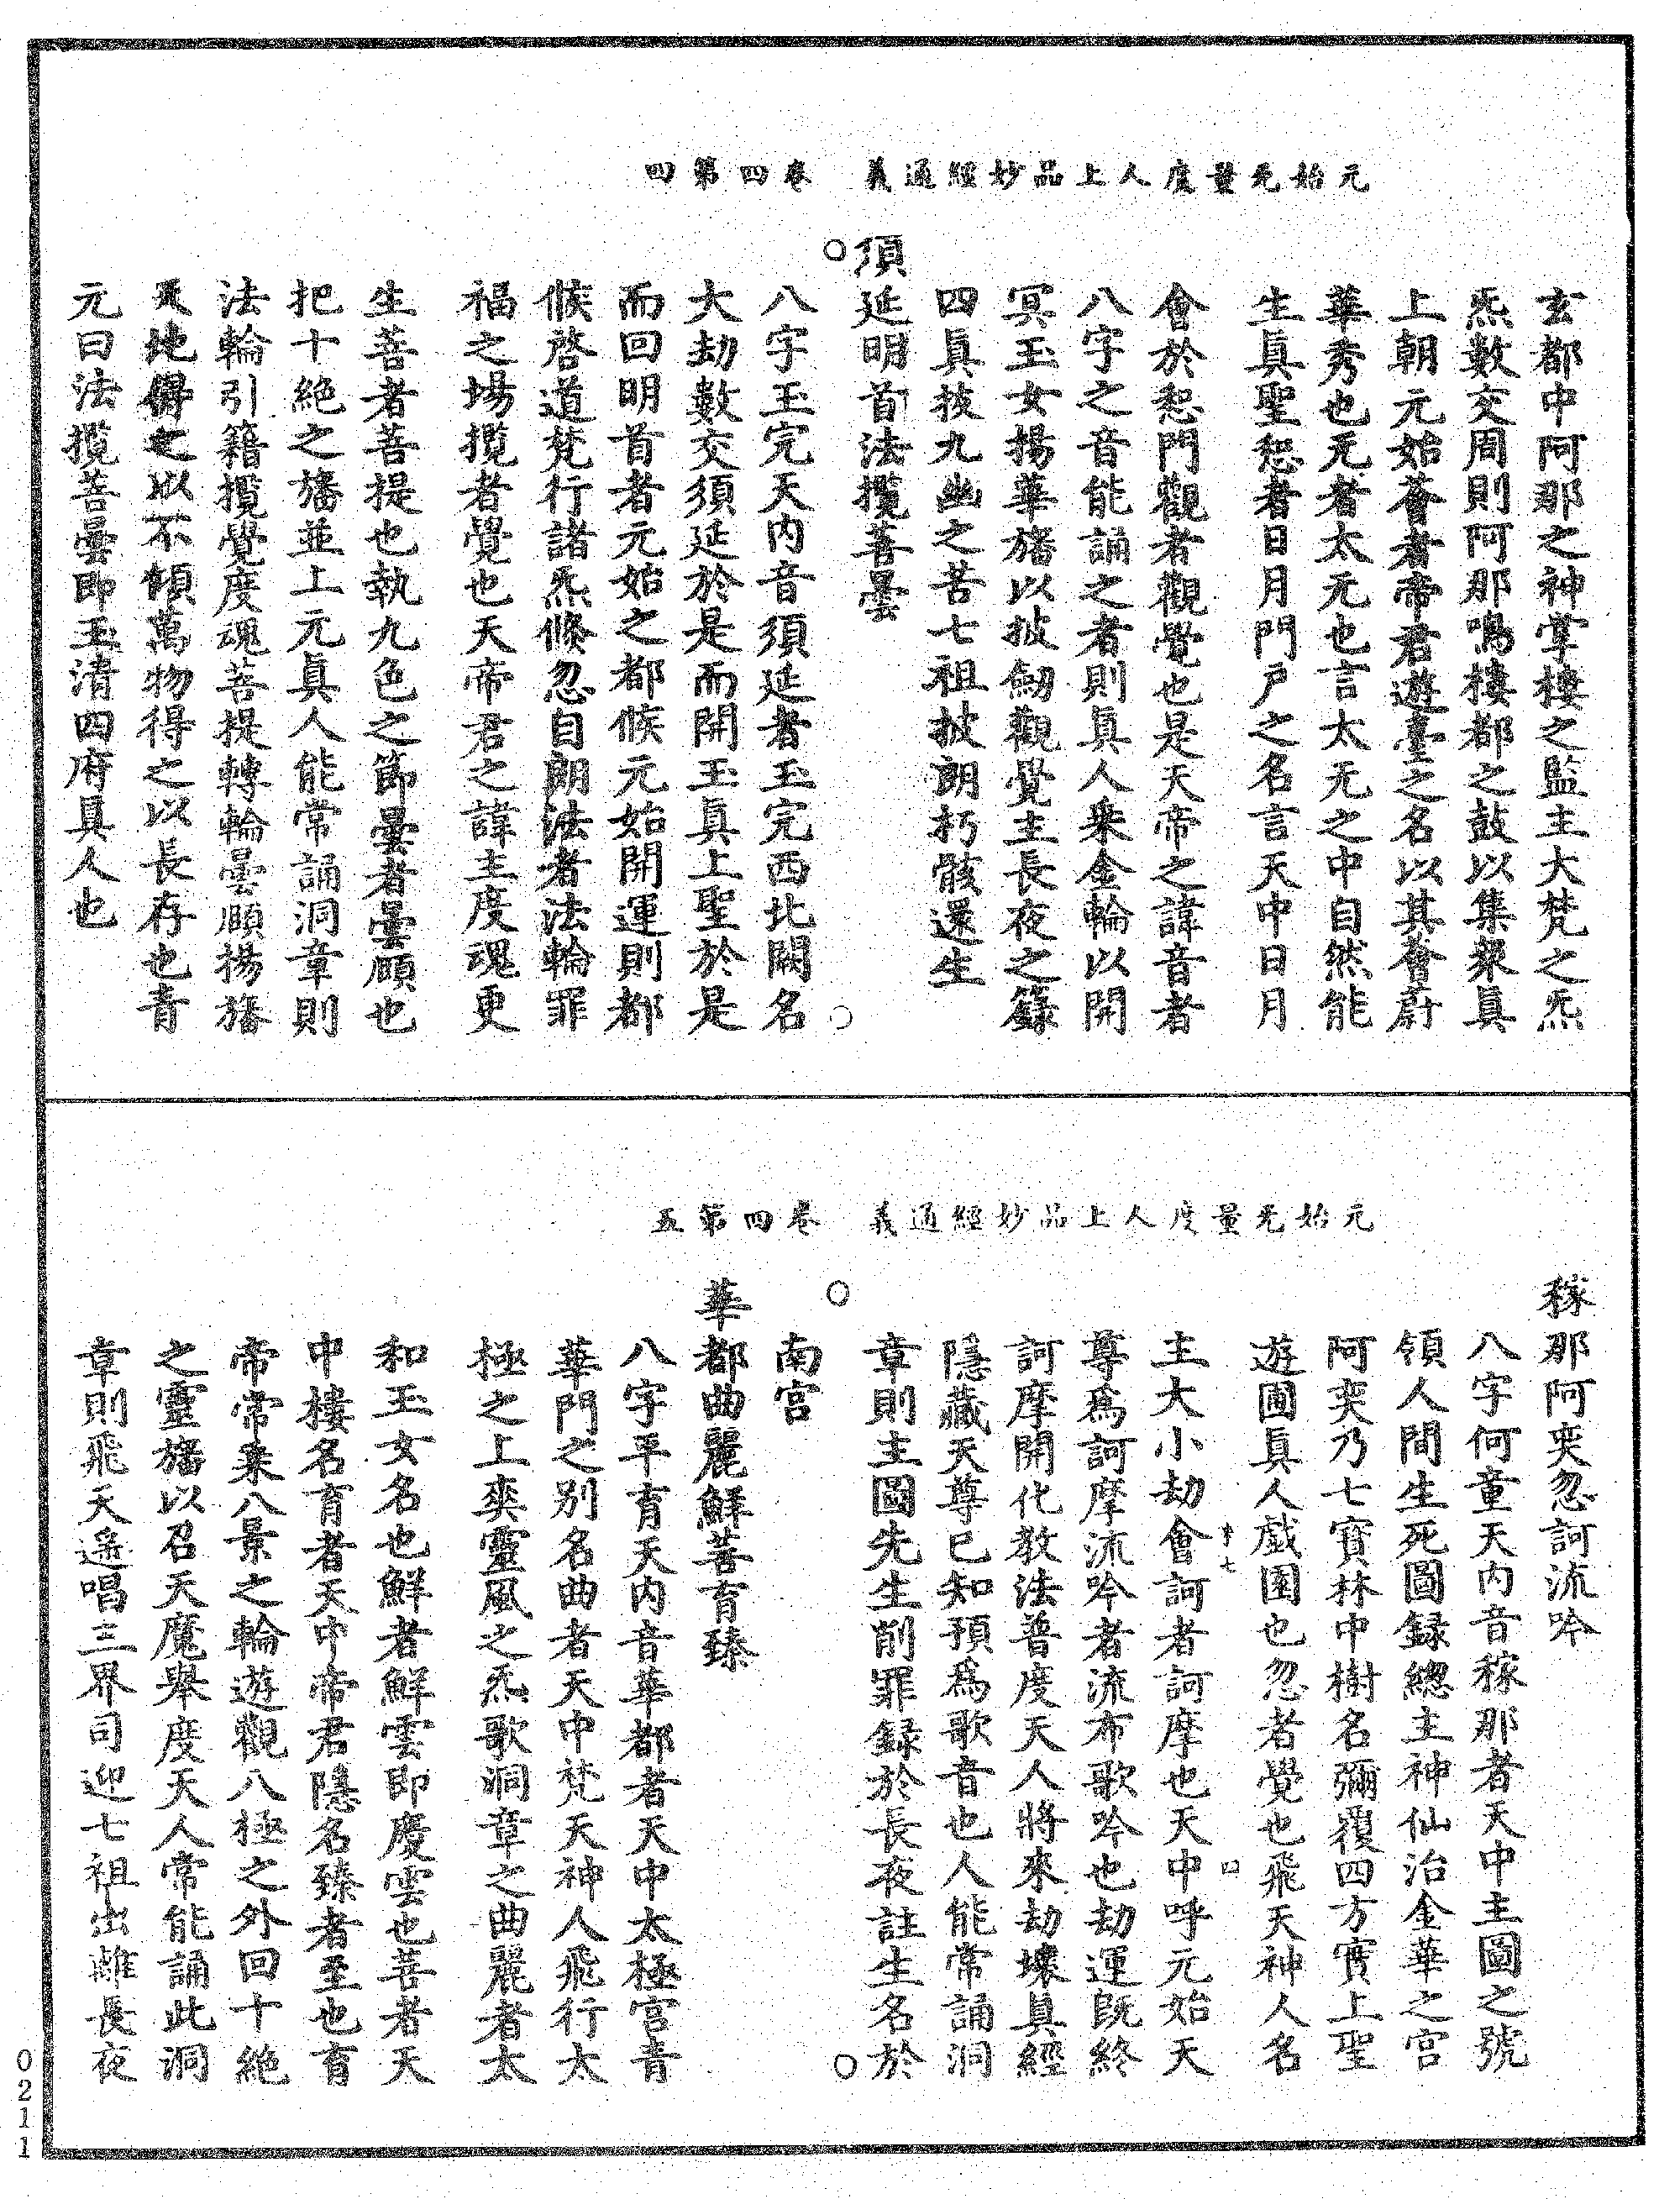 元始无量度人上品妙經通義　卷四第四
玄都中阿那之神掌樓之監主大梵之炁
炁數交周則阿那鳴樓都之鼓以集衆真
上朝元始薈者帝君遊臺之名以其薈蔚
華秀也无者太无也言太无之中自然能
生真聖恕者日月門戶之名言天中日月
會於恕門觀者觀覺也是天帝之諱音者
八字之音能誦之者則真人乗金輪以開
冥玉女揚華旛以披劒觀覺主長夜之籙
四真抜九幽之苦七祖披朗朽骸還生
須延明首法攬菩曇
八字玉完天内音須延者玉完西北闕名
大劫數交須延於是而開玉真上聖於是
而回明首者元始之都候元始開運則都
候啓道梵行諸炁倐忽自朗法者法輪罪
福之場攬者覺也天帝君之諱主度魂更
生菩者菩提也執九色之節曇者曇願也
把十絶之旛並上元真人能常誦洞章則
法輪引籍攬覺度魂菩提轉輪曇願揚旛
天地得之以不傾萬物得之以長存也青
元曰法攬菩曇即玉清四府真人也
元始无量度人上品妙經通義　卷四第五
稼那阿奕忽訶流吟
八字何童天内音稼那者天中主圖之號
領人間生死圖録總主神仙治金華之宫
阿奕乃七寶林中樹名彌覆四方實上聖
遊圃真人戲園也忽者覺也飛天神人名
主大小劫會訶者訶摩也天中呼元始天
尊爲訶摩流吟者流布歌吟也劫運旣終
訶摩開化教法普度天人將來劫壞真經
隱藏天尊已知預爲歌音也人能常誦洞
章則主圖先生削罪録於長夜註生名於
南宫
華都曲麗鮮菩育臻
八字平育天内音華都者天中太極宫青
華門之别名曲者天中梵天神人飛行太
極之上奕靈風之炁歌洞章之曲麗者太
和玉女名也鮮者鮮雲即慶雲也菩者天
中樓名育者天中帝君隱名臻者至也育
帝常乗八景之輪遊觀八極之外回十絶
之靈旛以召天魔舉度天人常能誦此洞
章則飛天遥唱三界司迎七祖出離長夜
0211